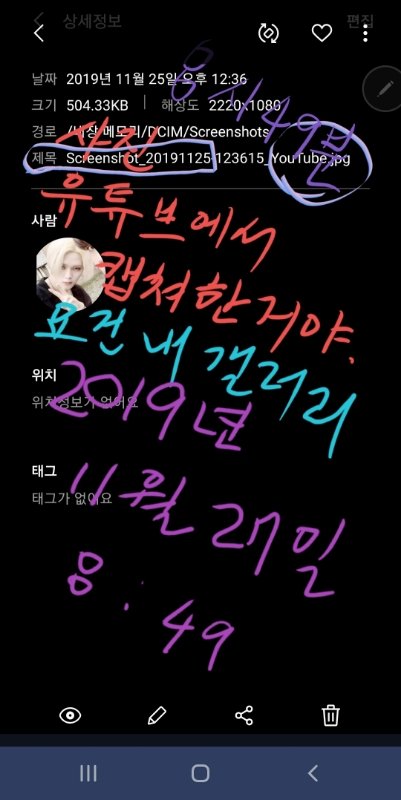 상세정보
편집
날짜 2019년 11월 25일 오후 12:36
크기 504.33KB 해상도 2220x1080
8시49분
경로 /내장 메모리/DCIM/Screenshots
사진
제목 Screenshot_20191125-123615_YouTube.jpg
유튜브에서
사람
캡쳐한거야.
요건 내 갤러리
위치
위치정보가 없어요
2019년
태그
태그가 없어요
11월 28일
8:49